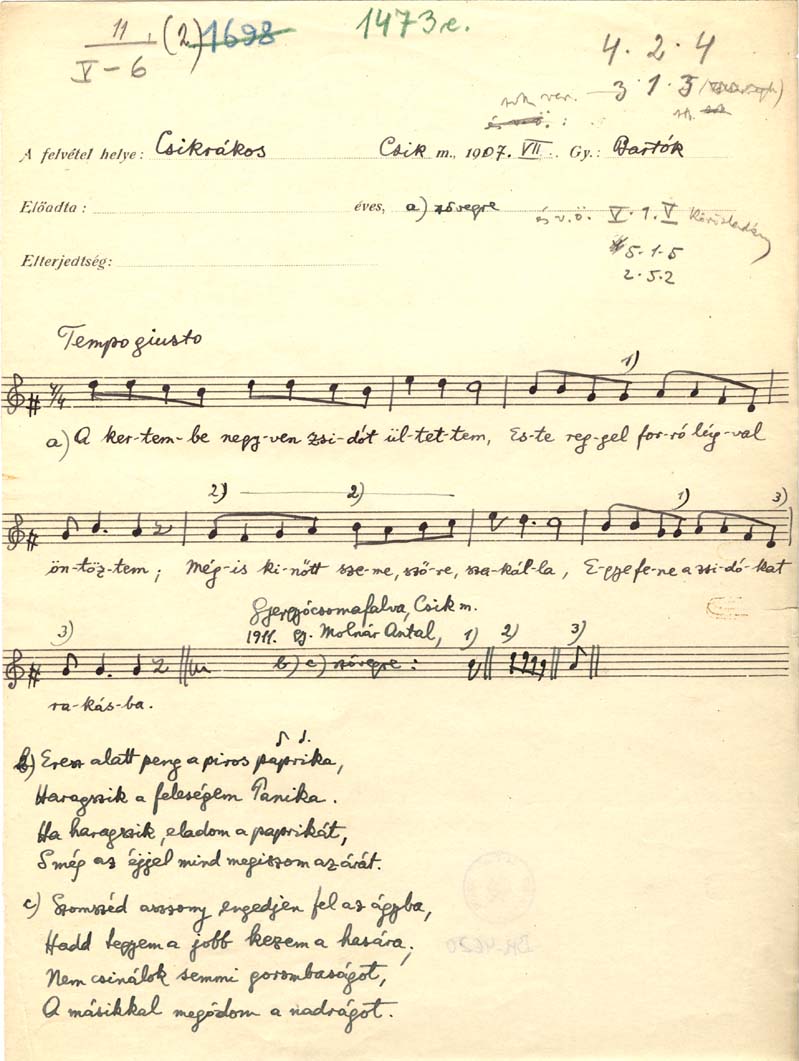 11. (2) 1698 1473e.
V–6
4. 2. 4
3. 1. 5
A felvétel helye: Csikrákos Csik m., 1907. VII. Gy.: Bartók
Előadta: éves, a) szövegre
és v.ö. V. 1. V Köröstladány
5. 1. 5
Elterjedtség:
2. 5. 2
Tempo giusto
1)
a) A ker-tem-be negy-ven zsi-dót ül-tet-tem, Es-te reg-gel for-ró lúg-val
2) 2) 1) 3)
ön-töz-tem; Még-is ki-nőtt sze-me, ször-re, szakál-la, E-gye fe-ne a zsi-dó-kat
Gyergyócsomafalva, Csik m.
3) 1911. gy. Molnár Antal,
b) c) szövegre: 1) 2) 3)
ra-kás-ba.
b) Eresz alatt peng a piros paprika,
Haragszik a feleségem Panika.
Ha haragszik, eladom a paprikát,
S még az éjjel mind megiszom az árát.
c) Szomszéd asszony engedjen fel az ágyba,
Hadd tegyem a jobb kezem a hasára;
Nem csinálok semmi gorombaságot,
A másikkal megódom a nadrágot.